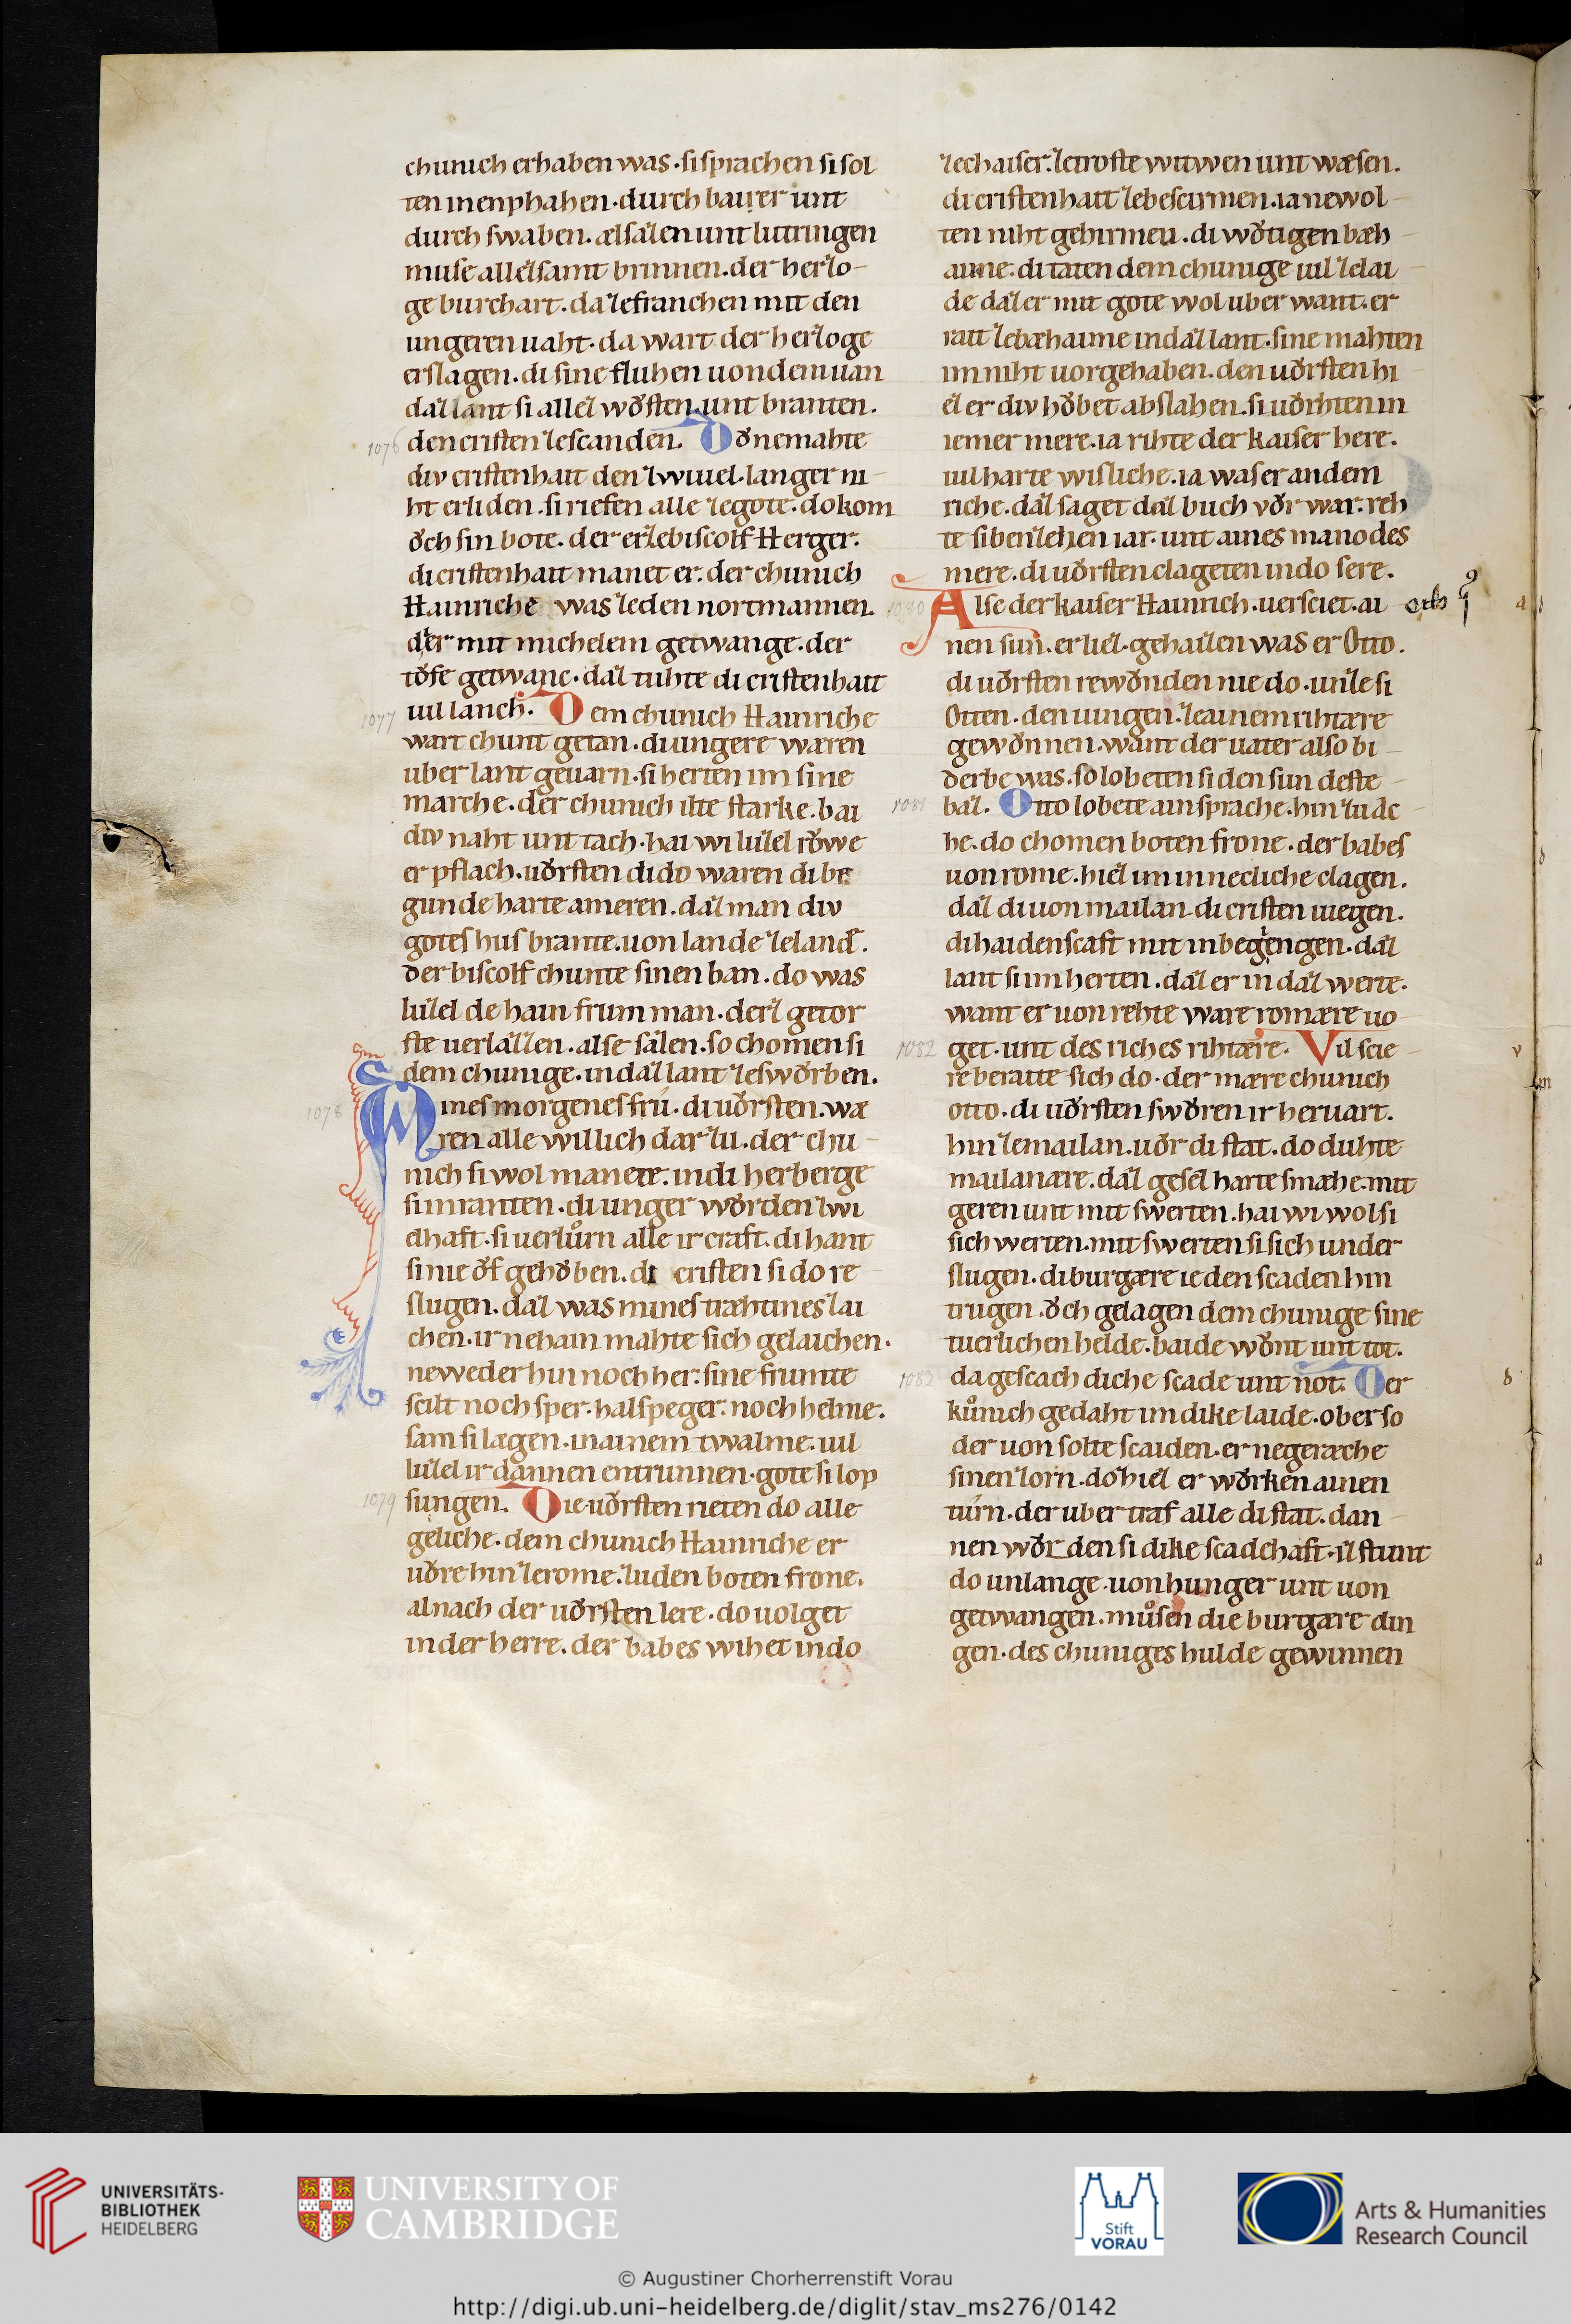 chunich erhaben was. si sprachen si sol
ten in enphahen. durch baier unt
durch swaben. ælsazen unt lutringen
muse allez samt brinnen. der herzo-
ge burchart. da ze franchen mit den
ungeren uaht. da wart der herzoge
erslagen. di sine fluhen uon dem uan
daz lant si allez wǒsten. unt branten.
1076 den cristen ze scanden. Dǒ ne mahte
div cristenhait den zwiuel. langer ni-
ht erliden. si riefen alle ze gote. do kom
ǒch sin bote. der erzebiscolf Herger.
di cristenhait manet er. der chunich
Hainriche was ze den nortmannen.
der mit michelem getwange. der
tǒfe getwanc. daz tuhte di cristenhait
1077 uil lanch. Dem chunich Hainriche
wart chunt getan. di ungere wæren
uber lant geuarn. si herten im sine
marche. der chunich ilte starke. bai
div naht unt tach. hai wi luzel rǒwe
er pflach. uǒrsten di do waren di be
gunde harte ameren. daz man div
gotes hus brante. uon lande ze lande.
der biscolf chunte sinen ban. do was
luzel dehain frum man. derz getor
ste uerlazzen. alse sazen. so chomen si
dem chunige. in daz lant ze swǒrben.
1078 Eines morgenes frů. di uǒrsten. wæ
ren alle willich dar zu. der chu-
nich si wol manete. in di herberge
si in ranten. di unger wǒrden zwi
elhaft. si uerlůrn alle ir craft. di hant
si nie ǒf gehǒben. di cristen si do re
slugen. daz was mines træhtines zai
chen. ir nehain mahte sich gelaichen.
neweder hin noch her. sine frumte
scilt noch sper. halsperger. noch helme.
sam si lægen. in ainem twalme. uil
luzel ir dannen entrunnen. gote si lop
1079 sungen. Die uǒrsten rieten do alle
geliche. dem chunich Hainriche er
uǒre hin ze rome. zu den boten frone.
al nach der uǒrsten lere. do uolget
in der herre. der babes wihet in do
ze chaiser. ze troste witwen unt wæsen.
di cristenhait ze bescirmen. ia ne wol-
ten niht gehirmen. di wǒtigen bæh-
aime. di taten dem chunige uil ze lai-
de daz er mit gote wol uber want. er
rait ze bæhaime in daz lant. sine mahten
im niht uor gehaben. den uǒrsten hi-
ez er div hǒbet abslahen. si uǒrhten in
iemer mere. ia rihte der kaiser here.
uil harte wisliche. ia was er an dem
riche. daz saget daz buch vǒr war. reh
te sibenzehen iar. unt aines manodes
mere. di uǒrsten clageten in do sere.
1080 Alse der kaiser Hainrich. uersciet. ai
nen sun. er liez. gehaizen was er Otto.
di uǒrsten rewǒnden nie do. unze si
Otten. den iungen. ze ainem rihtære
gewǒnnen. want der uater also bi-
derbe was. so lobeten si den sun deste-
1081 baz. Otto lobete ain sprache. hin zu ac
he. do chomen boten frone. der babes
uon rome. hiez im innecliche clagen.
daz di uon mailan. di cristen wegen.
di haidenscaft mit in begengen. daz
lant si im herten. daz er in daz werte.
want er uon rehte ware romære uo
1082 get. unt des riches rihtære. Vil scie-
re beraite sich do. der mære chunich
otto. di uǒrsten swǒren ir heruart.
hin ze mailan. uǒr di stat. do duhte
mailanære. daz gesez harte smæhe. mit
geren unt mit swerten. hai wi wol si
sich werten. mit swerten si sich under
slugen. di burgære ie den scaden hin
trugen. ǒch gelagen dem chunige sine
tuerlichen helde. baide wǒnt unt tot.
1083 da gescach diche scade unt not. Der
kůnich gedaht im dike laide. ober so
der uon solte scaiden. er negeræche
sinen zorn. do hiez er wǒrken ainen
turn. der uber traf alle di stat. dan-
nen wǒrden si dike scadehaft. iz stunt
do unlange. uon hunger unt uon
getwangen. můsen die burgære din
gen. des chuniges hulde gewinnen
UNIVERSITÄTS-
BIBLIOTHEK
HEIDELBERG
UNIVERSITY OF
CAMBRIDGE
Stift
VORAU
Arts & Humanities
Research Council
© Augustiner Chorherrenstift Vorau
http://digi.ub.uni-heidelberg.de/diglit/stav_ms276/0142